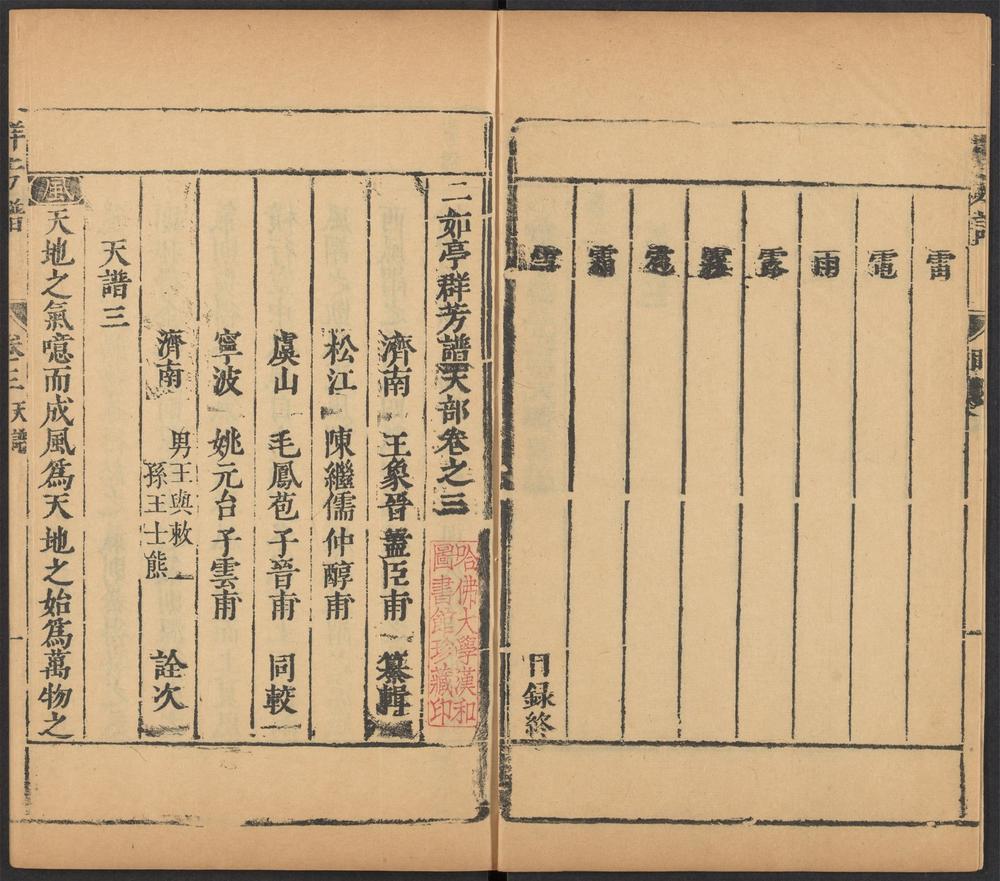 雷
電
雨
露
目録終
二如亭群芳譜天部卷之三
濟南 王象晉藎臣甫 纂輯
松江 陳繼儒仲醇甫
虞山 毛鳳苞子晉甫 同較
寧波 姚元台子雲甫
濟南 男王與敕
孫王士熊 詮次
天譜三
風 天地之氣噫而成風爲天地之始爲萬物之
卷三 天譜
一
哈佛大學漢和
圖書館珍藏印